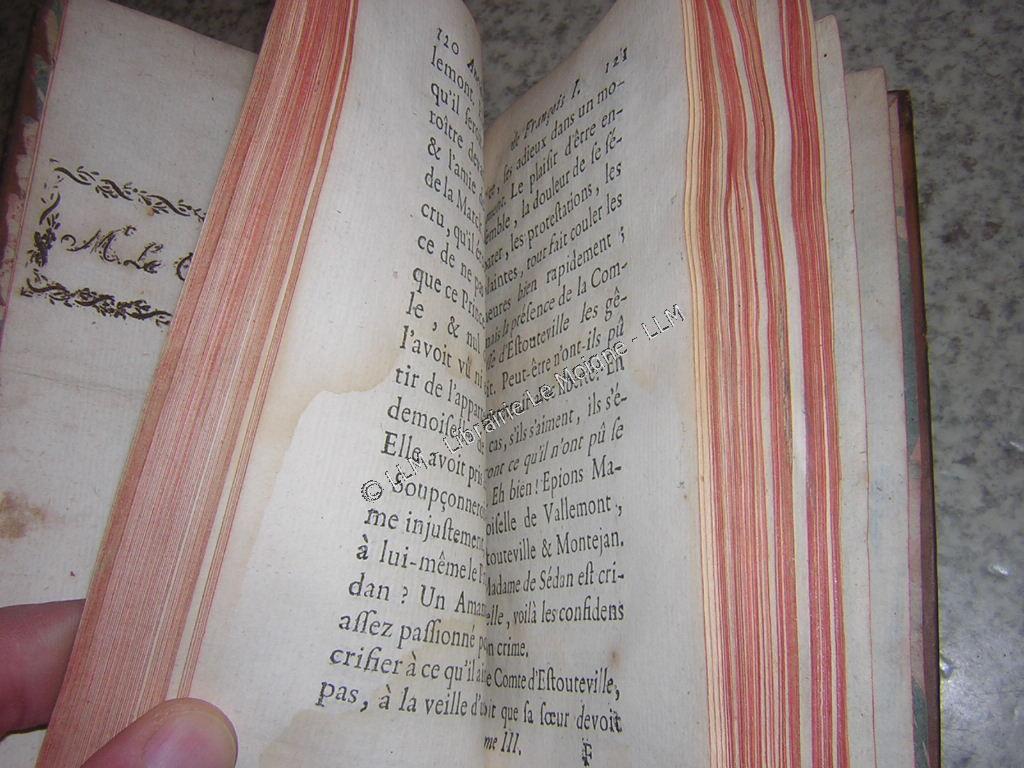 Mr Le
120
lemont,
qu'il
roître
& l'amie
de la
cru, qu'il
ce de ne
que ce
le, & nul
l'avoit vû
tir de
demoiselle
Elle avoit
Soupçonner
me injustement
à lui-même le
dan ? Un
assez passionné
crifier à ce qu'il
pas, à la veille
de François I. 121
les adieux dans un mo-
Le plaisir d'être en-
la douleur de se sé-
les protestations, les
tout fait couler les
bien rapidement ;
mais la présence de la Com-
d'Estouteville les gê-
Peut-être n'ont-ils pû
En
cas, s'ils s'aiment, ils s'é-
ce qu'il n'ont pû se
Eh bien ! Epions Ma-
de Vallemont,
& Montejan.
de Sédan est cri-
voilà les confidens
crime.
Comte d'Estouteville,
que sa sœur devoit
III.
F
© LLM - Librairie Le Moigne - LLM